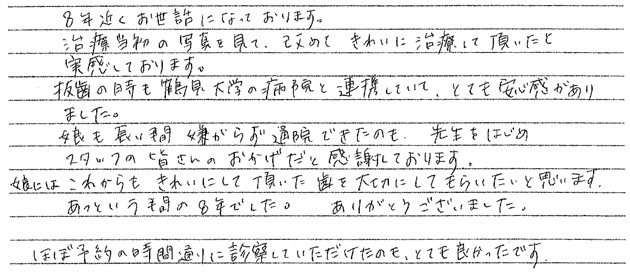 8年近くお世話になっております。
治療当初の写真を見て、改めてきれいに治療して頂いたと
実感しております。
抜歯の時も鶴見大学の病院と連携していて、とても安心感があり
ました。
娘も長い間嫌がらず通院できたのも、先生をはじめ
スタッフの皆さんのおかげだと感謝しております。
娘にはこれからもきれいにして頂いた歯を大切にしてもらいたいと思います。
あっという間の8年でした。 ありがとうございました。
ほぼ予約の時間通りに診察していただけたのも、とても良かったです